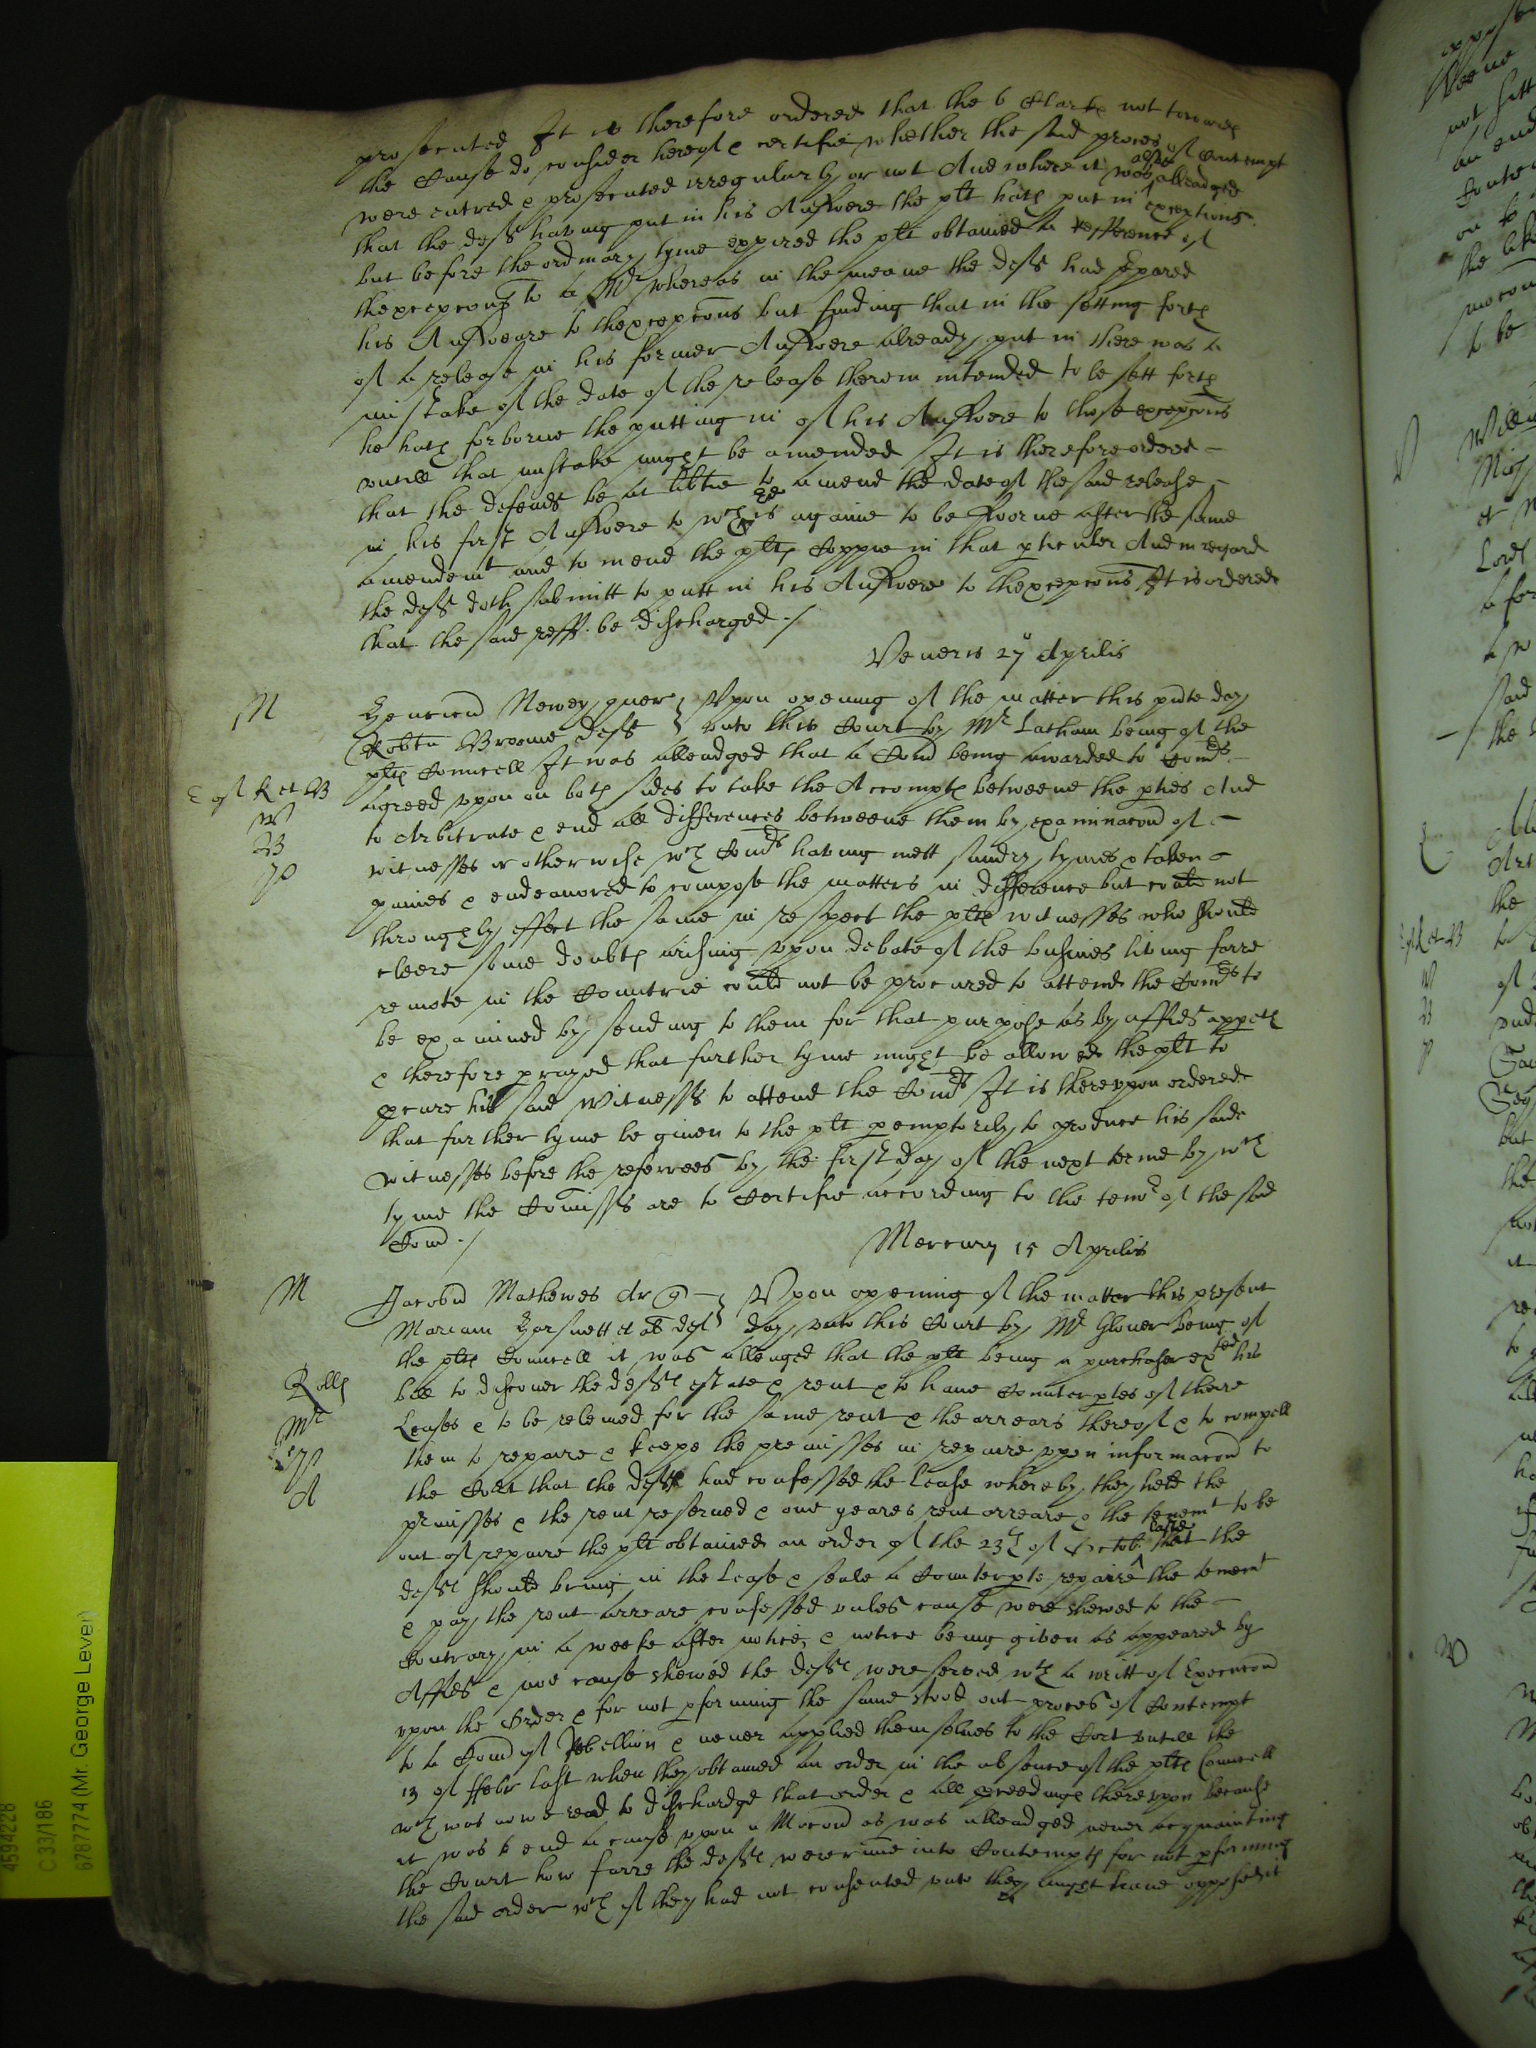 prosecuted It is therefore ordered that the 6 Clarkes not towards
the Cause do consider hereof & certifie whether the said proces of Contempt
were entred & prosecuted irregularly or not And where it was also alleadged
that the deft having put in his Answere the plt hath put in exceptions
but before the ordinary tyme expired the plt obtained a refference of
thexcepcons to a Mr whereas in the meane the deft had ppared
his Answeare to thexcepcons but finding that in the setting forth
of a release in his former Answere already put in there was a
mistake of the date of the release therein intended to be sett forth
he hath forborne the putting in of his Answere to those excepcons
untill that mistake might be amended It is therefore ordered
that the defendt be at libtie to amend the date of the said release
in his first Answere to wch he is againe to be sworne after the same
amendemt and to mend the plts Coppie in that pticuler And in regard
the deft doth submitt to putt in his Answere to thexcepcons It is ordered
that the said reff. be discharged ./
Veneris 27o Aprilis
M
Henricu Newey quer } Upon opening of the matter this pnte day
Robtu Broome deft } unto this Court by Mr Latham being of the
plts Councell It was alleadged that a Comd being awarded to Comrs
R et B
agreed upon on both sides to take the Accompts betweene the pties And
to Arbitrate & end all differences betweene them by examinacon of
B
witnesses or otherwise wch Comrs having mett sundry tymes & taken
paines & endeavored to compose the matters in difference but could not
throughly effect the same in respect the plts witnesses who should
cleere some doubts arising upon debate of the busines living farre
remote in the Countrie could not be procured to attend the Comrs to
be examined by sending to them for that purpose as by affidt appeth
& therefore prayed that further tyme might be allowed the plt to
pcure his said Witnesses to attend the Comrs It is thereupon ordered
that further tyme be given to the plt peremptorily to produce his said
witnesses before the referrees by the first day of the next terme by wch
tyme the Comissrs are to Certifie according to the tenor of the said
Comd ./
Mercury 15 Aprilis
M
Jacobu Mathewes Ar q } Upon opening of the matter this present
Mariam Harsnett et al deft } day unto this Court by Mr Glover being of
the plts Councell it was alleaged that the plt being a purchaser exhted his
Rolls
bill to discover the defts estate & rent & to have Counterptes of their
Mr
Leases & to be releived for the same rent & the arrears thereof & to compell
them to repaire & keepe the premisses in repaire upon informacon to
A
the Cort that the defts had confessed the Lease whereby they held the
pmisses & the rent reserved & one yeares rent arreare & the tenemt to be
out of repaire the plt obtained an order of the 23th of Octobr last that the
defts should bring in the Lease & seale a Counterpte repaire the tenemt
& pay the rent arreare confessed unles cause were shewed to the
Contrary in a weeke after notice, & notice being given as appeared by
Affidt & noe cause shewed the defts were served wth a writt of Execucon
upon the Order & for not pforming the same stood out proces of Contempt
to a Comd of Rebellion & never applied themselves to the Cort untill the
13 of Febr last when they obtained an order in the absence of the plts Councell
wch was nowe read to dischardge that order & all pceedings thereupon because
it was to end a cause upon a Mocon as was alleadged never acquainting
the Court how farre the defts were runne into Contempts for not pforming
the said order wch if they had not consented unto they might have opposed it
4594228
C 33/186
6787774 (Mr. George Lever)